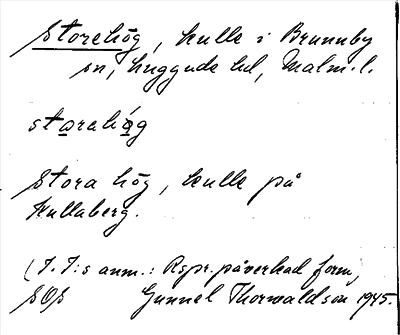 Storehög, kulle i Brunnby
sn, Luggude hd, Malm. l.
starahǫ́g
Stora hög, kulle på
Kullaberg.
(I. I:s anm.: Rspr. påverkad form)
SOS Gunnel Thorwaldson 1945.